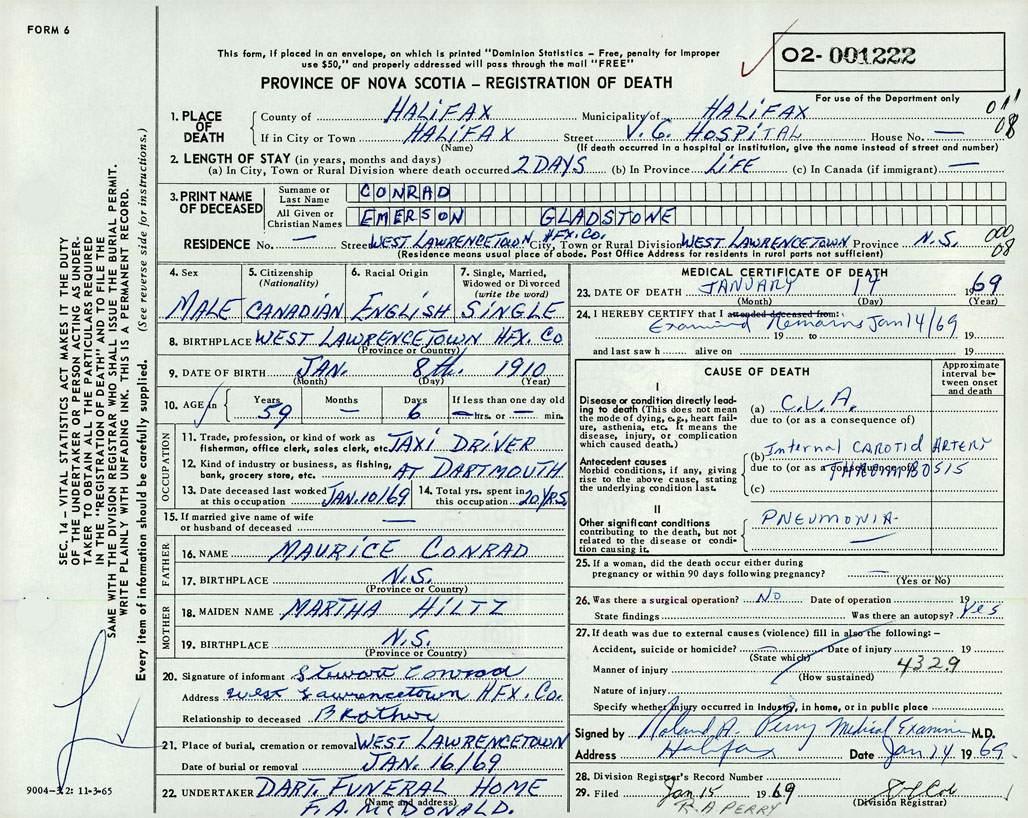 FORM 6
This form, if placed in an envelope, on which is printed "Dominion Statistics – Free, penalty for improper
use $50," and properly addressed will pass through the mail "FREE"
PROVINCE OF NOVA SCOTIA – REGISTRATION OF DEATH
02- 001222
For use of the Department only
011
08
1. PLACE OF DEATH
County of HALIFAX Municipality of HALIFAX
If in City or Town HALIFAX Street V.G. HOSPITAL House No. —
(Name) (If death occurred in a hospital or institution, give the name instead of street and number)
2. LENGTH OF STAY (in years, months and days)
(a) In City, Town or Rural Division where death occurred 2 DAYS (b) In Province LIFE (c) In Canada (if immigrant) —
3. PRINT NAME OF DECEASED
Surname or Last Name CONRAD
All Given or Christian Names EMERSON GLADSTONE
RESIDENCE No. — Street WEST LAWRENCETOWN HFX. CO. City, Town or Rural Division WEST LAWRENCETOWN Province N.S. 000
08
(Residence means usual place of abode. Post Office Address for residents in rural parts not sufficient)
4. Sex 5. Citizenship (Nationality) 6. Racial Origin 7. Single, Married, Widowed or Divorced (write the word)
MALE CANADIAN ENGLISH SINGLE
8. BIRTHPLACE WEST LAWRENCETOWN HFX. CO
(Province or Country)
9. DATE OF BIRTH JAN. 8th. 1910
(Month) (Day) (Year)
10. AGE in Years 59 Months — Days 6 If less than one day old — hrs. or — min.
OCCUPATION
11. Trade, profession, or kind of work as fisherman, office clerk, sales clerk, etc. TAXI DRIVER
12. Kind of industry or business, as fishing, bank, grocery store, etc. AT DARTMOUTH
13. Date deceased last worked at this occupation JAN. 10/69 14. Total yrs. spent in this occupation 20 YRS
15. If married give name of wife or husband of deceased —
FATHER
16. NAME MAURICE CONRAD
17. BIRTHPLACE N.S.
(Province or Country)
MOTHER
18. MAIDEN NAME MARTHA HILTZ
19. BIRTHPLACE N.S.
(Province or Country)
20. Signature of informant Stewart Conrad
Address West Lawrencetown HFX. Co.
Relationship to deceased Brother
21. Place of burial, cremation or removal WEST LAWRENCETOWN
Date of burial or removal JAN. 16/69
22. UNDERTAKER DART. FUNERAL HOME
(Name and address)
F. A. McDONALD.
MEDICAL CERTIFICATE OF DEATH
23. DATE OF DEATH JANUARY 14 1969
(Month) (Day) (Year)
24. I HEREBY CERTIFY that I attended deceased from:
Examined Remains Jan 14/69
19 to 19
and last saw h alive on 19
CAUSE OF DEATH
Approximate interval between onset and death
I
Disease or condition directly leading to death (This does not mean the mode of dying, e.g., heart failure, asthenia, etc. It means the disease, injury, or complication which caused death.)
(a) C.V.A.
due to (or as a consequence of)
Antecedent causes
Morbid conditions, if any, giving rise to the above cause, stating the underlying condition last.
(b) Internal CAROTID ARTERY
due to (or as a consequence of)
THROMBOSIS
(c)
II
Other significant conditions contributing to the death, but not related to the disease or condition causing it.
PNEUMONIA
25. If a woman, did the death occur either during pregnancy or within 90 days following pregnancy? —
(Yes or No)
26. Was there a surgical operation? No Date of operation 19
State findings Was there an autopsy? Yes
27. If death was due to external causes (violence) fill in also the following: –
Accident, suicide or homicide? — Date of injury 19
(State which)
Manner of injury 4329
(How sustained)
Nature of injury
Specify whether injury occurred in Industry, in home, or in public place
Signed by Roland A. Perry Medical Examiner M.D.
Address Halifax Date Jan 14 1969.
28. Division Registrar's Record Number
29. Filed Jan 15 1969
(Division Registrar)
R. A PERRY
SEC. 14 – VITAL STATISTICS ACT MAKES IT THE DUTY
OF THE UNDERTAKER OR PERSON ACTING AS UNDER-
TAKER TO OBTAIN ALL THE PARTICULARS REQUIRED
IN THE "REGISTRATION OF DEATH" AND TO FILE THE
SAME WITH THE DIVISION REGISTRAR WHO SHALL ISSUE THE BURIAL PERMIT.
WRITE PLAINLY WITH UNFADING INK. THIS IS A PERMANENT RECORD.
Every item of information should be carefully supplied. (See reverse side for instructions.)
9004-3.2: 11-3-65